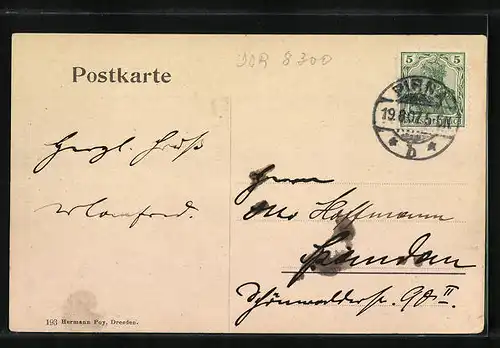 DDR 8300
Postkarte
5 5
PIRNA
19.8.07. 5-6N.
* b *
Herzl. Gruß
Manfred.
Herrn
Otto Hoffmann
Spandau
Schönwalderstr. 90 II
193 Hermann Poy, Dresden.